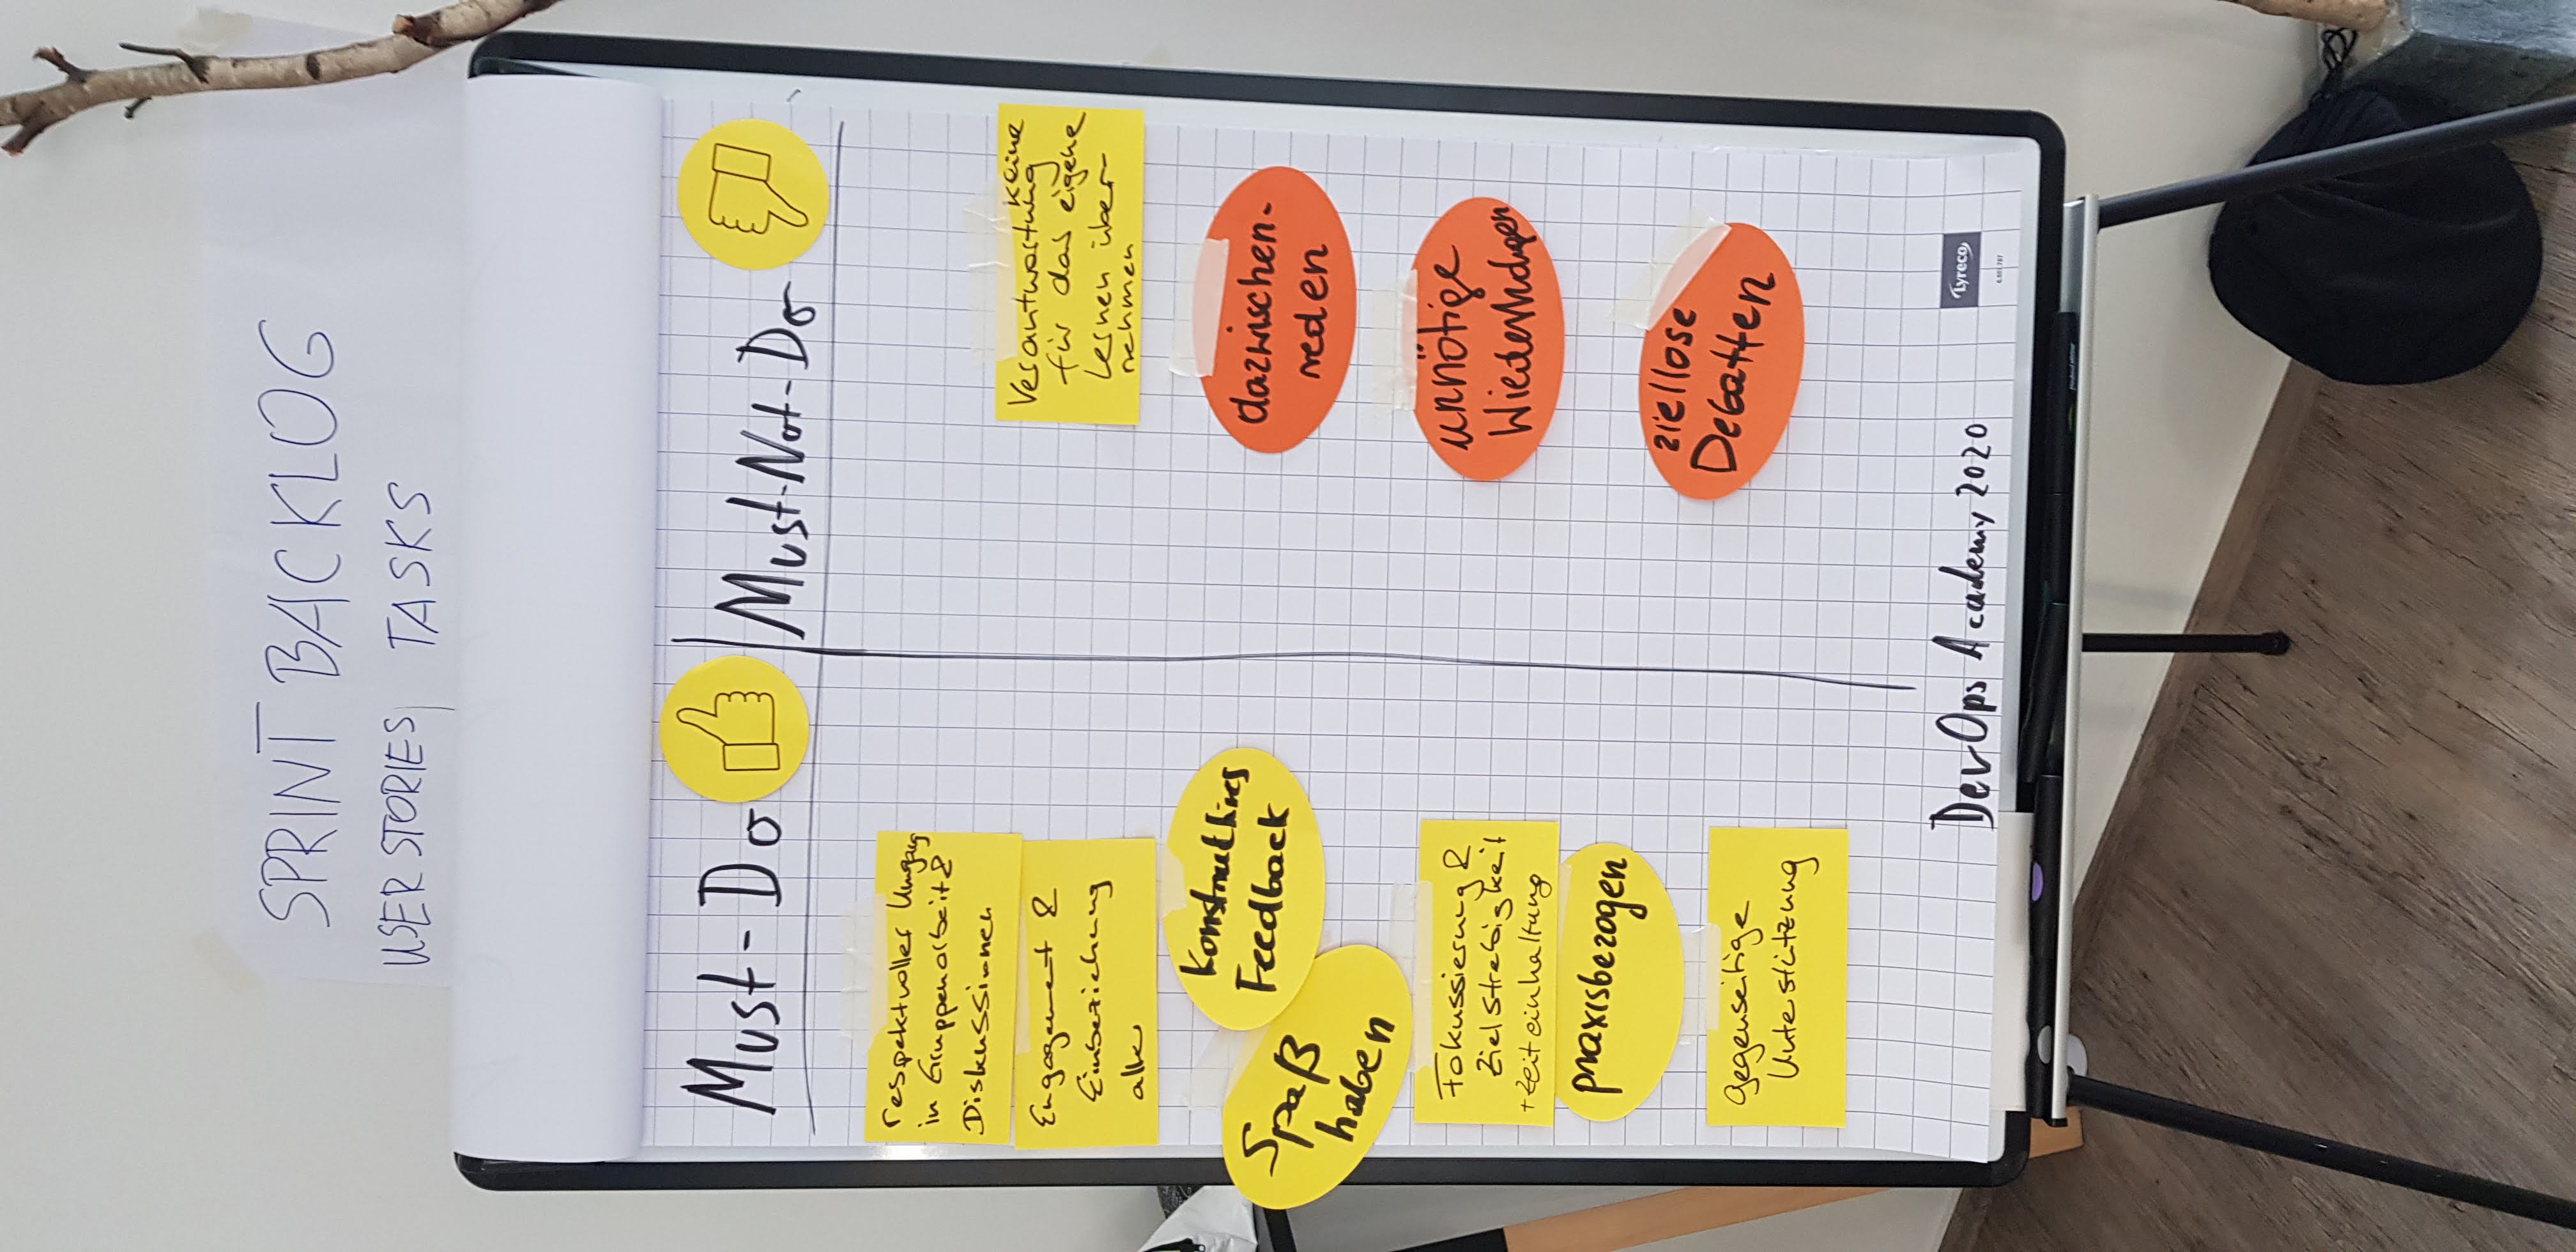 SPRINT BACKLOG
USER STORIES, TASKS
Must-Do
Must-Not-Do
respektvoller Umgang
in Gruppenarbeit &
Diskussionen
Engagement &
Einbeziehung
aller
Konstruktives
Feedback
Spaß
haben
Fokussierung &
Zielstrebigkeit
+ Zeiteinhaltung
praxisbezogen
gegenseitige
Unterstützung
keine
Verantwortung
für das eigene
Lernen über-
nehmen
dazwischen-
reden
unnötige
Wiederholungen
ziellose
Debatten
DevOps Academy 2020
Lyreco